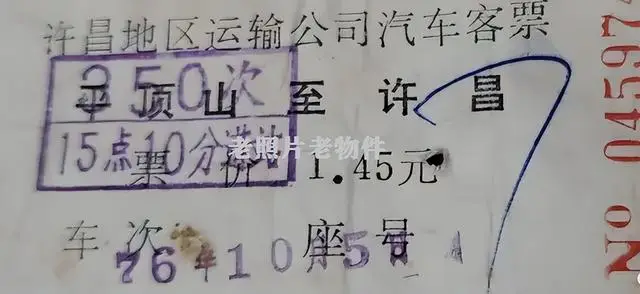 许昌地区运输公司汽车客票
350次
平顶山至许昌
15点10分
老照片老物件
票价1.45元
车次 座号
76年10月5日
No 04597